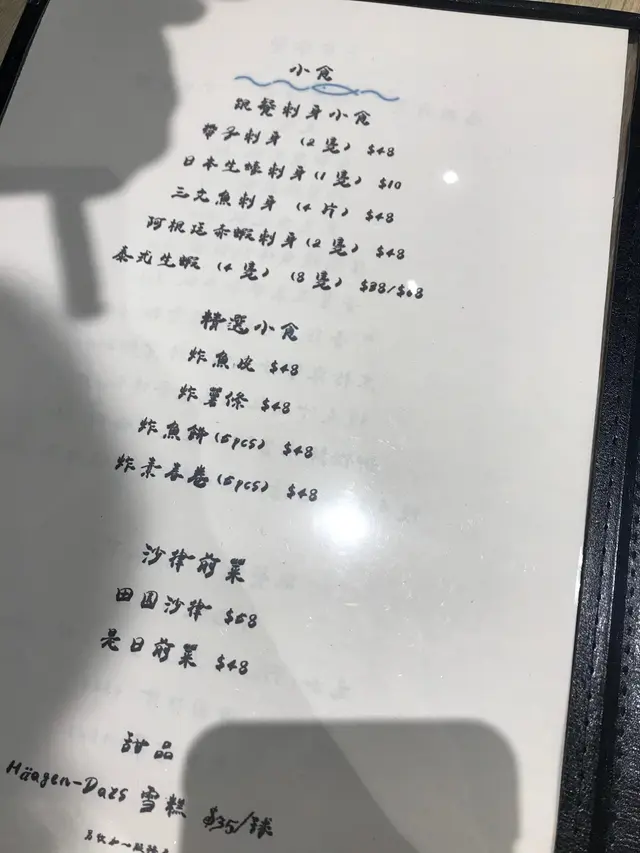 小食
跟餐刺身小食
帶子刺身 (2隻) $48
日本生蠔刺身 (1隻) $10
三文魚刺身 (4片) $48
阿根廷赤蝦刺身 (2隻) $48
泰式生蝦 (4隻) (8隻) $38/$68
精選小食
炸魚皮 $48
炸薯條 $48
炸魚餅 (5pcs) $48
炸素春卷 (5pcs) $48
沙律前菜
田園沙律 $58
是日前菜 $48
甜品
Häagen-Dazs 雪糕 $35/球